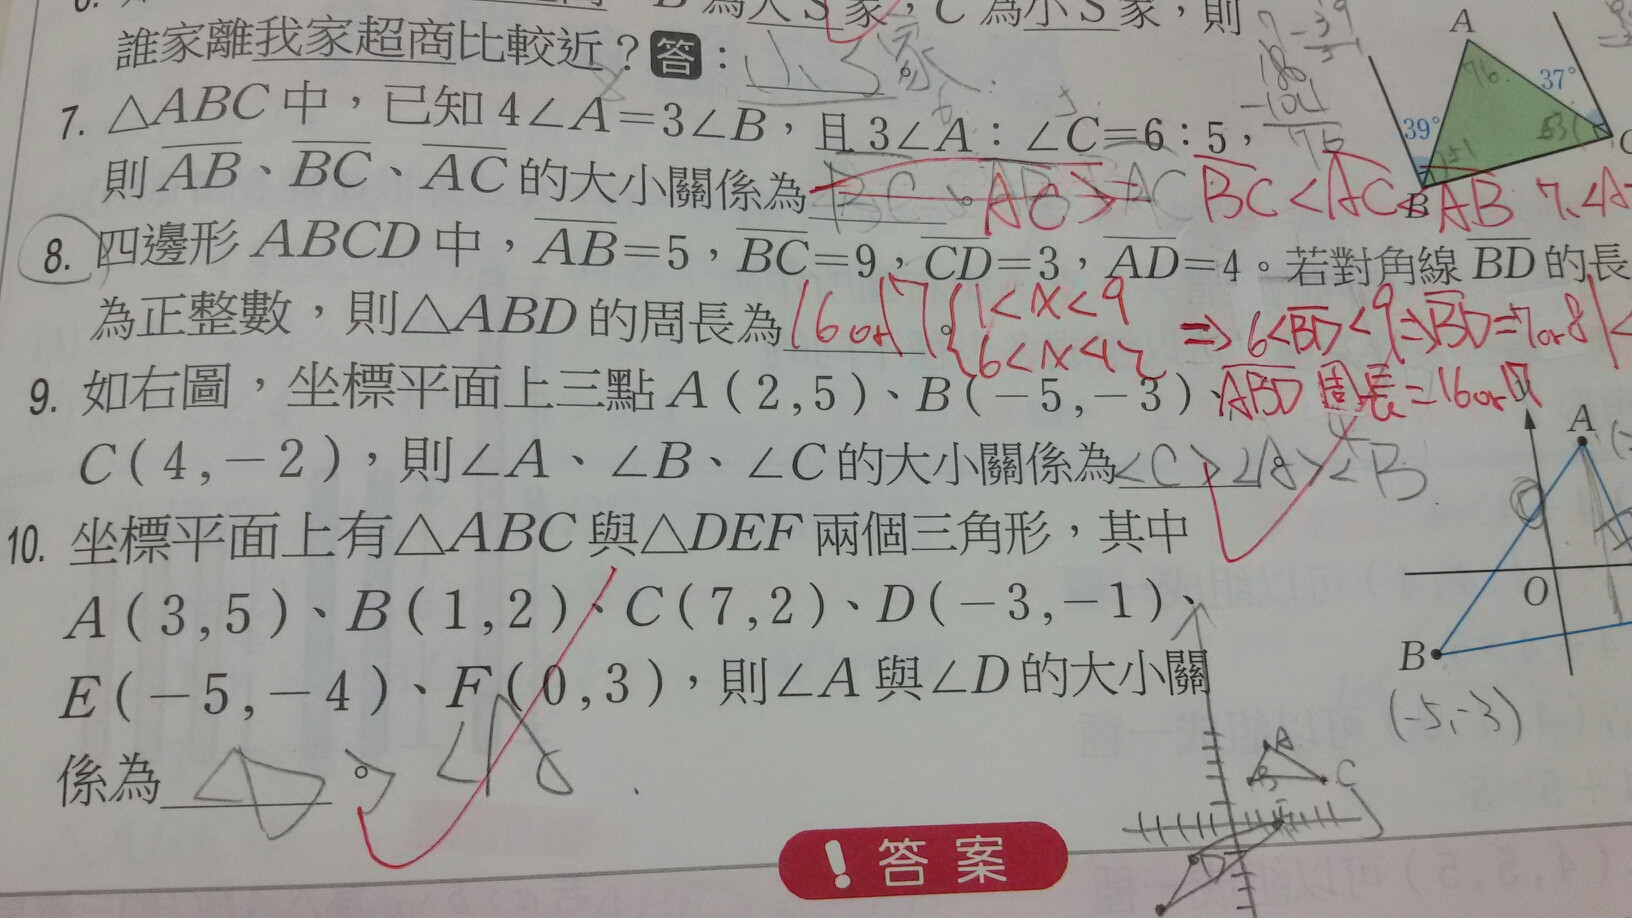 為大S家，C 為小S家，則
誰家離我家超商比較近？答：小S家。
7. △ABC 中，已知 4∠A=3∠B，且 3∠A：∠C=6：5，
則 AB、BC、AC 的大小關係為 AC > AC 。 BC < AC < AB
8. 四邊形 ABCD 中，AB=5，BC=9，CD=3，AD=4。若對角線 BD 的長
為正整數，則△ABD 的周長為 16 or 17 。 { 1<x<9
6<x<12 ⇒ 6<BD<9 ⇒ BD=7 or 8
ABD 周長=16 or 17
9. 如右圖，坐標平面上三點 A(2,5)、B(-5,-3)、
C(4,-2)，則∠A、∠B、∠C 的大小關係為 <C > ∠A > <B 。
10. 坐標平面上有△ABC 與△DEF 兩個三角形，其中
A(3,5)、B(1,2)、C(7,2)、D(-3,-1)、
E(-5,-4)、F(0,3)，則∠A 與∠D 的大小關
係為 ∠D > ∠A 。
! 答案
A
76
37°
39°
51
53
B
C
180
-104
76
A
O
B
(-5,-3)
A
B
C
D